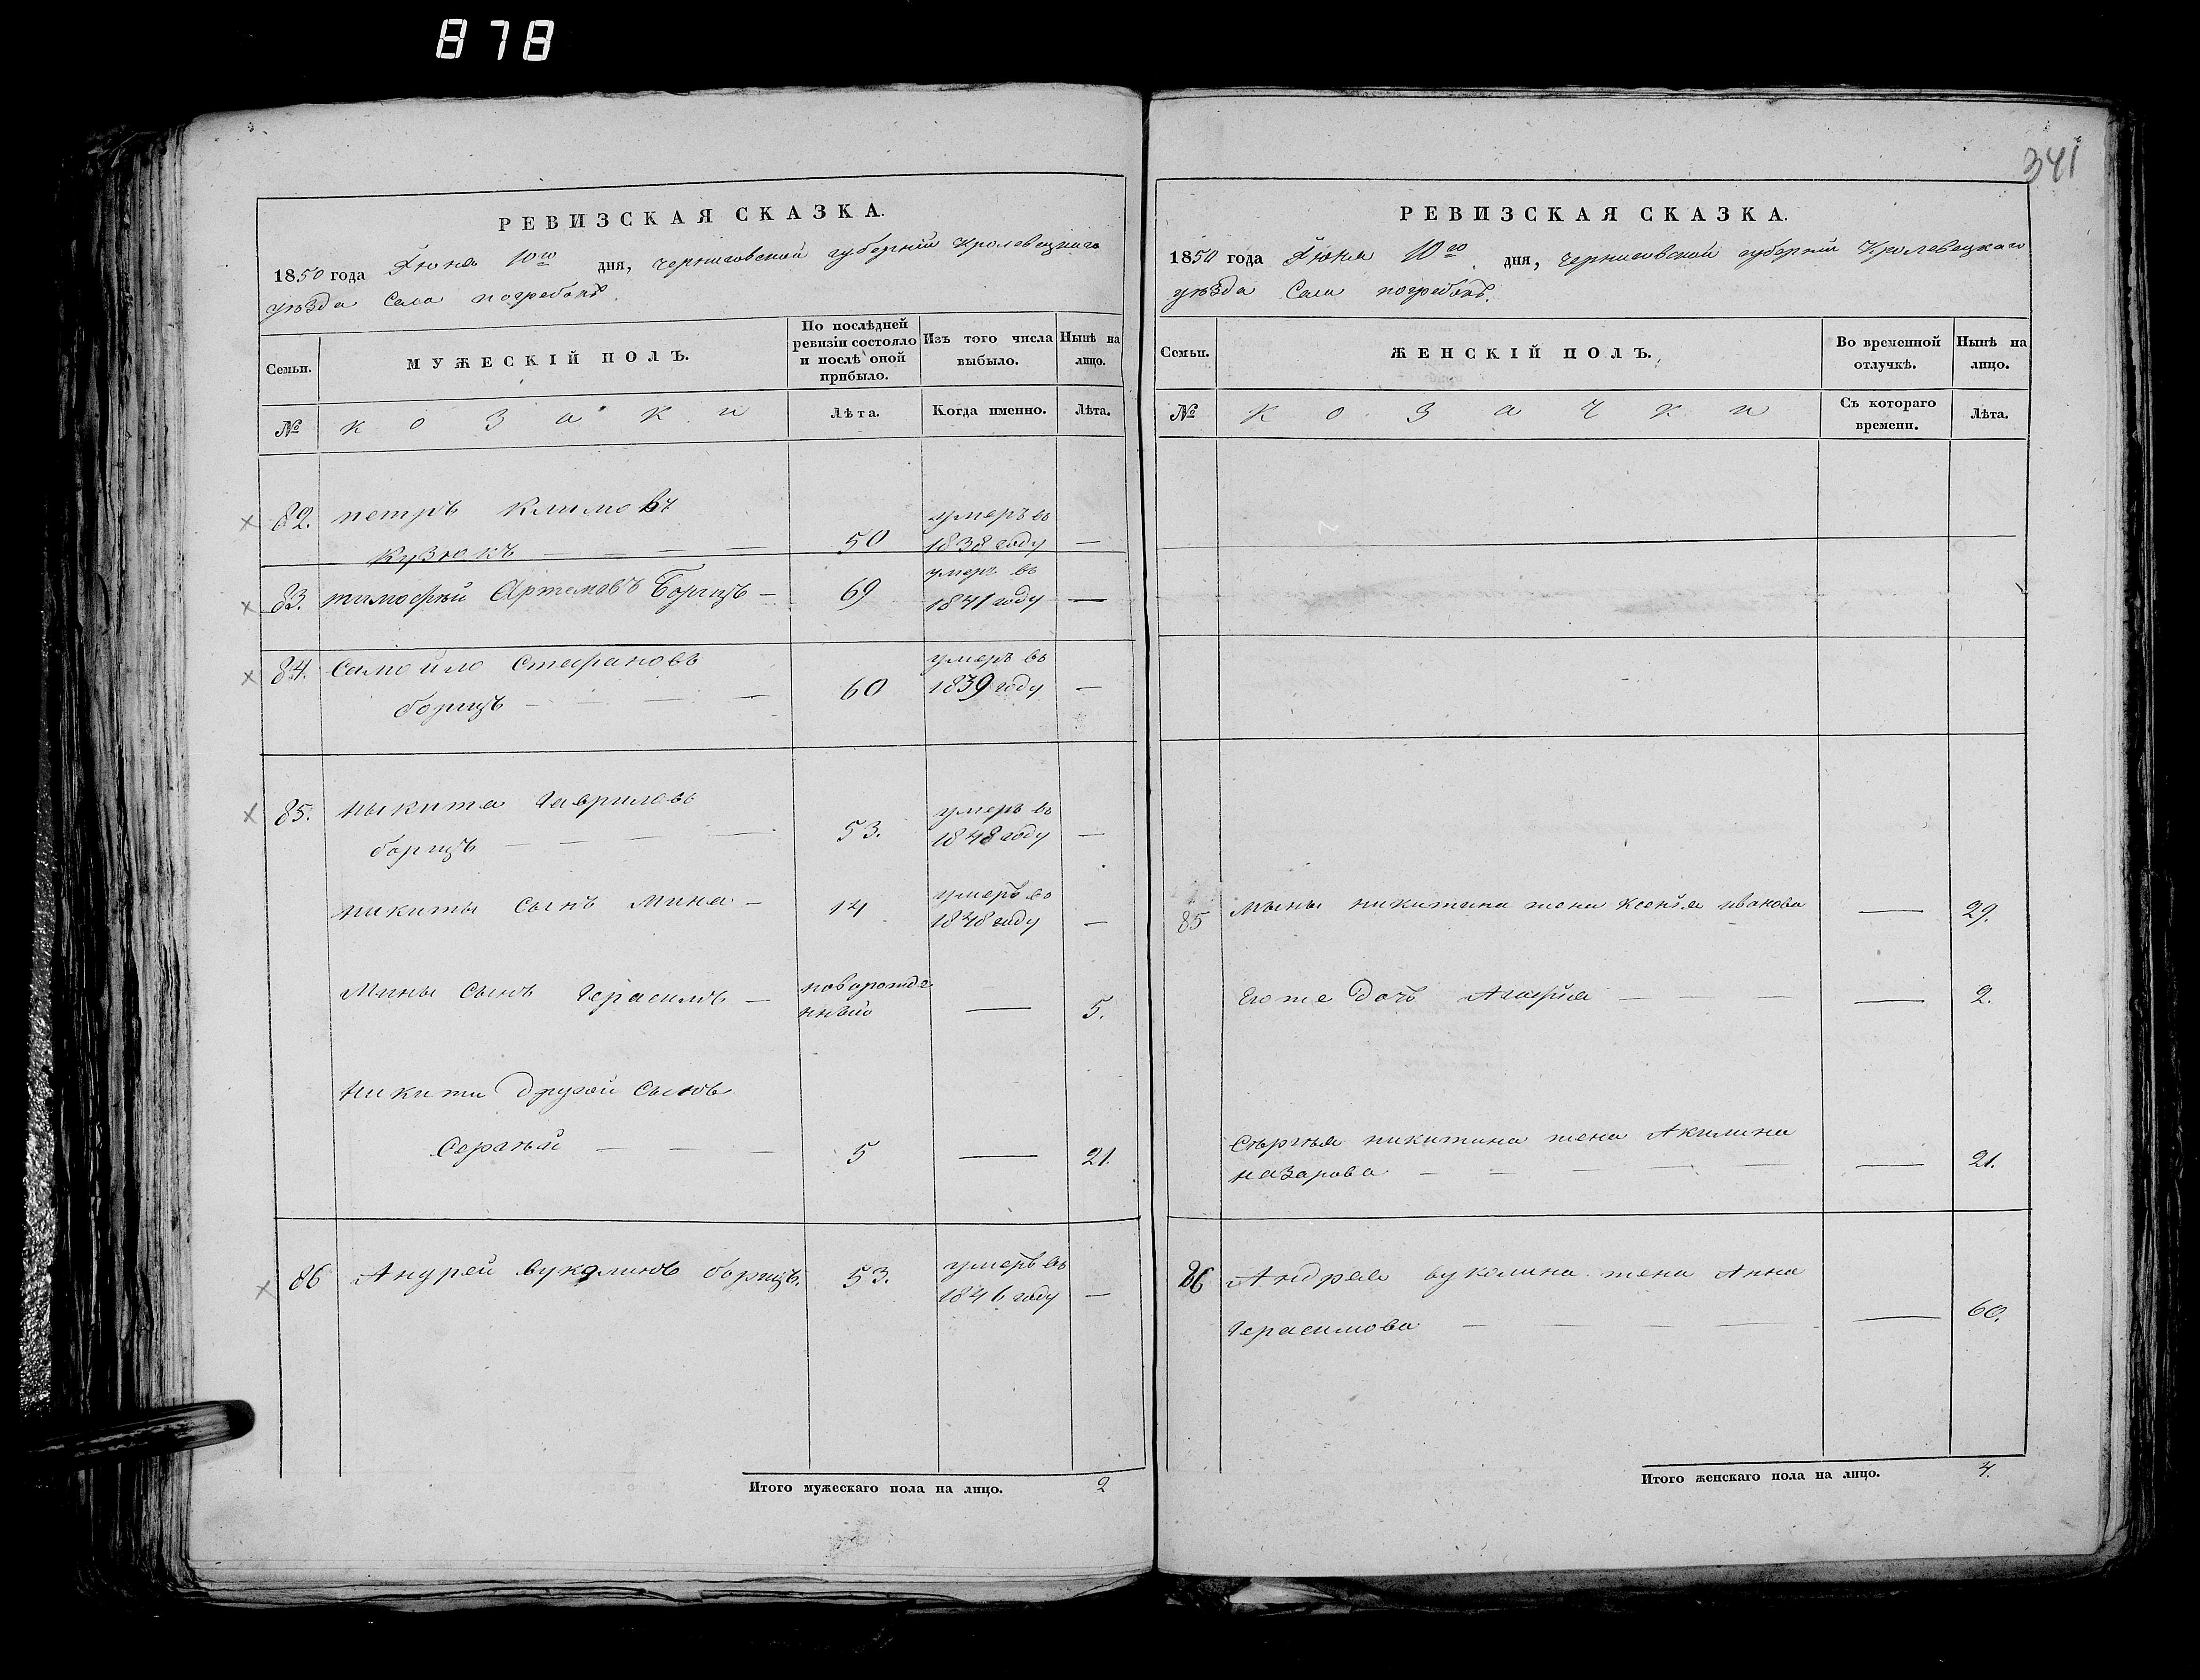 878
341
РЕВИЗСКАЯ СКАЗКА.
1850 года Іюня 10го дня, черниговской губерніи Кролевецкаго
уѣзда Села погребокъ.
Семьи.
МУЖЕСКІЙ ПОЛЪ.
По послѣдней
ревизіи состояло
и послѣ оной
прибыло.
Изъ того числа
выбыло.
Нынѣ на
лицо.
№
козаки
Лѣта.
Когда именно.
Лѣта.
82. петръ Климовъ умеръ въ
Кузюкъ — — — — 50 1838 году —
83. тимофѣй Артемовъ Борщъ — 69 умеръ въ
1841 году —
84. Самойло Стефановъ умеръ въ
борщъ — — — — 60 1839 году —
85. Ныкита Гавриловъ умеръ въ
борщъ — — — — 53. 1848 году —
никиты сынъ Мина — 14 умеръ въ
1848 году —
Мины Сынъ Герасимъ — новорожде
нный — 5.
Никиты другой Сынъ
Сергѣй — — — 5 — 21.
86 Андрей вуколинъ борщъ. 53. умеръ въ
1846 году —
Итого мужескаго пола на лицо. 2
РЕВИЗСКАЯ СКАЗКА.
1850 года Іюня 10го дня, черниговской губерніи Кролевецкаго
уѣзда Села погребокъ.
Семьи.
ЖЕНСКІЙ ПОЛЪ.
Во временной
отлучкѣ.
Нынѣ на
лицо.
№
козачки
Съ котораго
времени.
Лѣта.
85 Мыны никитина жена Ксенія иванова — 29.
Его же дочь Агафія — — — — 2.
Сѣргѣя никитина жена Акилина
назарова — — — — — — 21.
86 Андрея вуколина жена Анна
Герасимова — — — — — — 60.
Итого женскаго пола на лицо. 4.